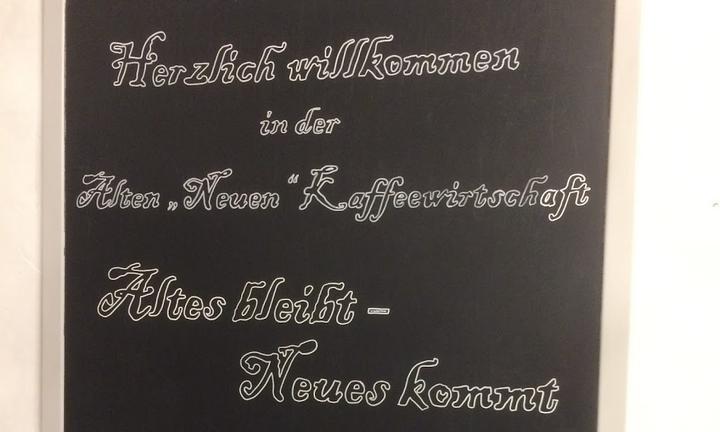 Herzlich willkommen
in der
Alten „Neuen“ Kaffeewirtschaft
Altes bleibt –
Neues kommt